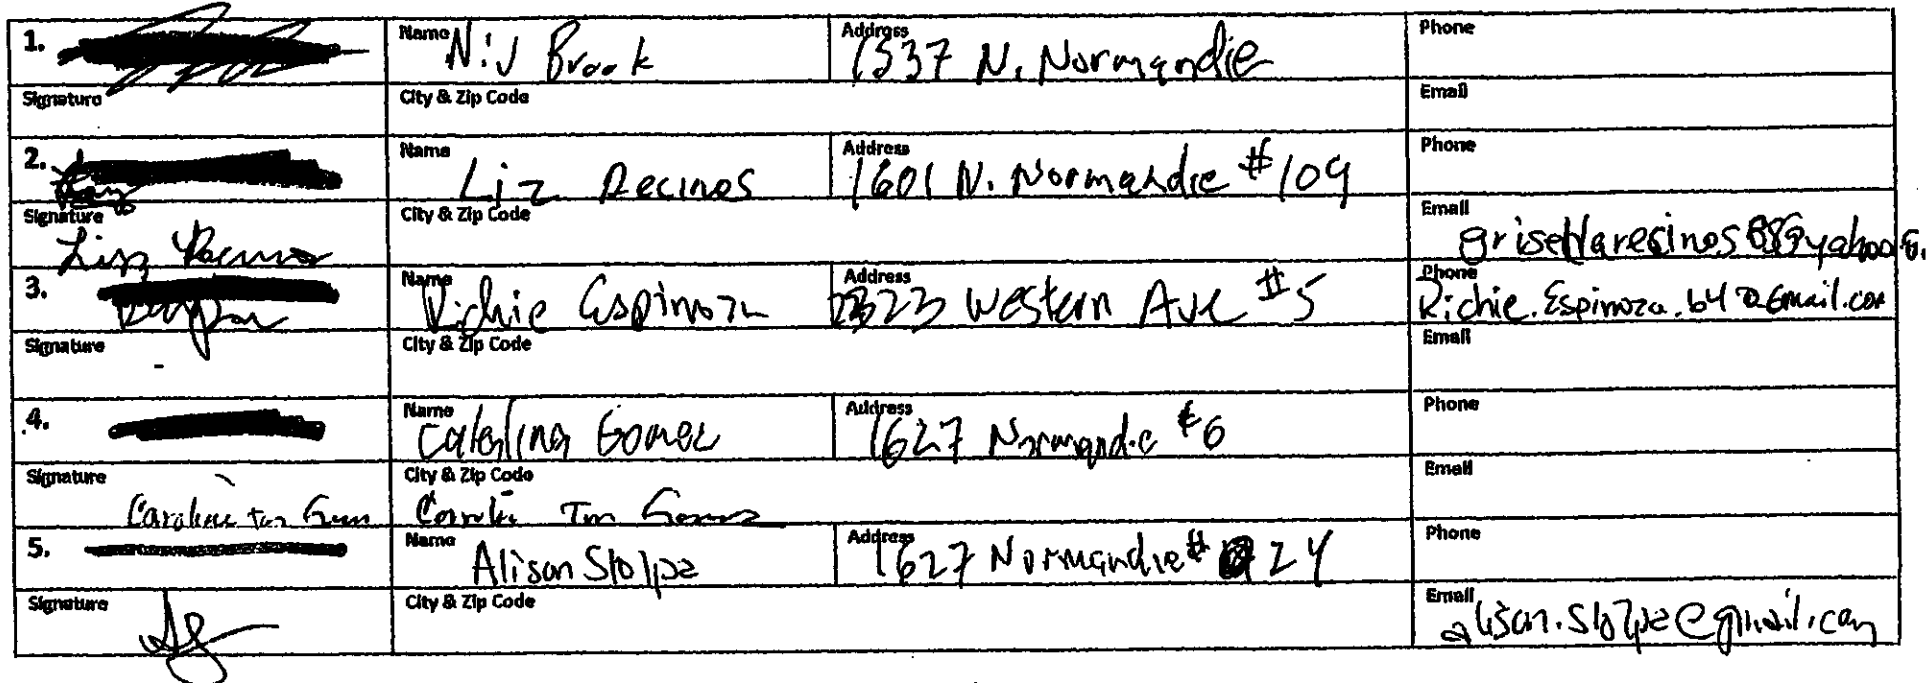 1. Name Niv Brook Address 1537 N. Normandie Phone
Signature City & Zip Code Email
2. Name Liz Recinos Address 1601 N. Normandie #109 Phone
Signature City & Zip Code Email
3. Name Richie Espinoza Address Western Ave #5 Phone Richie.Espinoza.b47@Gmail.com
Signature City & Zip Code Email
4. Name Gomez Address 1627 Normandie #6 Phone
Signature City & Zip Code Email
5. Name Alison Stolpe Address 1627 Normandie # 24 Phone
Signature City & Zip Code Email alison.stolpe@gmail.com